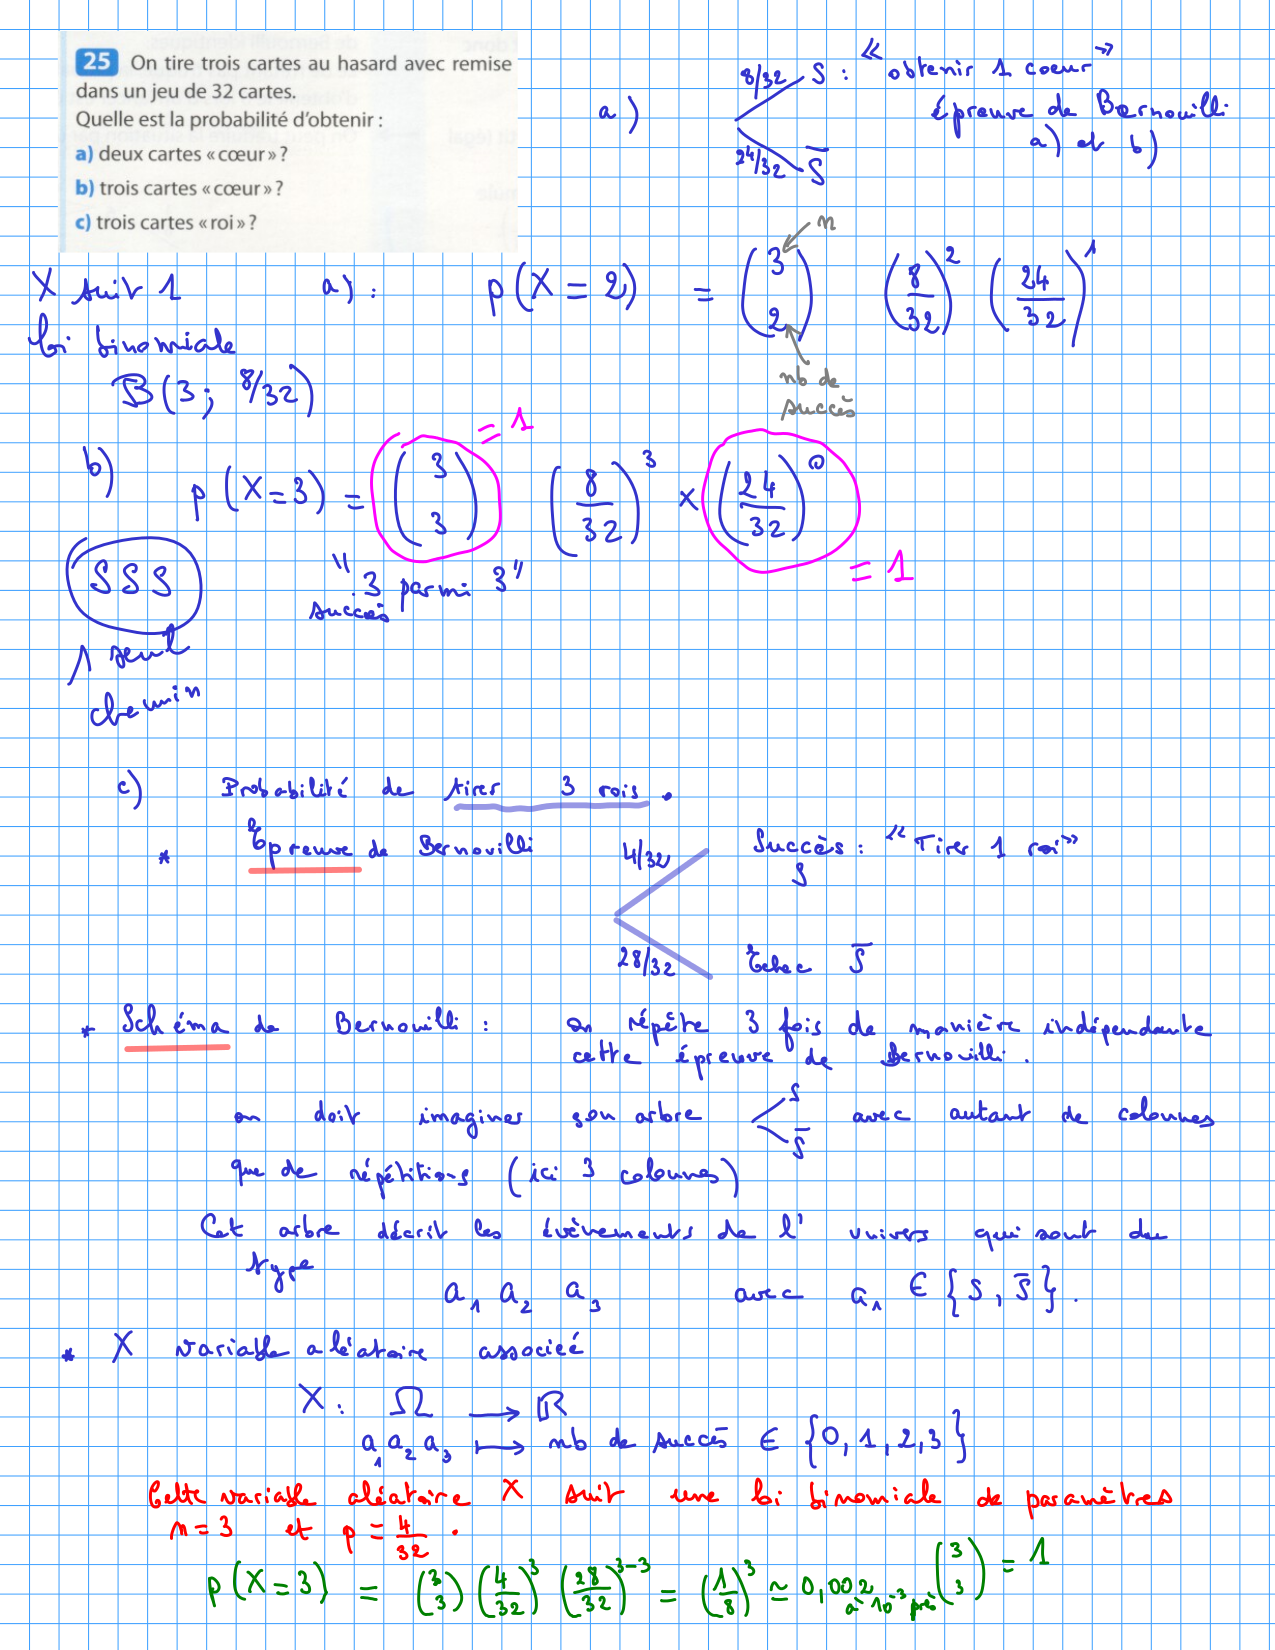 25 On tire trois cartes au hasard avec remise
dans un jeu de 32 cartes.
Quelle est la probabilité d'obtenir :
a) deux cartes « cœur » ?
b) trois cartes « cœur » ?
c) trois cartes « roi » ?
a) 8/32 S : « obtenir 1 coeur »
24/32 S̅
épreuve de Bernouilli
a) et b)
X suit 1
loi binomiale
B(3; 8/32)
a) : p(X = 2) = (3 2) (8/32)^2 (24/32)^1
n
nb de
succès
b) p(X=3) = (3 3) (8/32)^3 × (24/32)^0
= 1
= 1
SSS
1 seul
chemin
"3 parmi 3"
succès
c) Probabilité de tirer 3 rois.
* Epreuve de Bernouilli 4/32 Succès : « Tirer 1 roi »
S
28/32 Echec S̅
* Schéma de Bernouilli : on répète 3 fois de manière indépendante
cette épreuve de Bernouilli.
on doit imaginer son arbre S S̅ avec autant de colonnes
que de répétitions (ici 3 colonnes)
Cet arbre décrit les évènements de l'univers qui sont du
type
a₁ a₂ a₃ avec a₁ ∈ {S, S̅}.
* X variable aléatoire associeé
X : Ω → ℝ
a₁ a₂ a₃ ↦ nb de succès ∈ {0, 1, 2, 3}
Cette variable aléatoire X suit une loi binomiale de paramètres
n = 3 et p = 4/32.
p(X=3) = (3 3) (4/32)^3 (28/32)^3-3 = (1/8)^3 ≃ 0,002 à 10^-3 près
(3 3) = 1